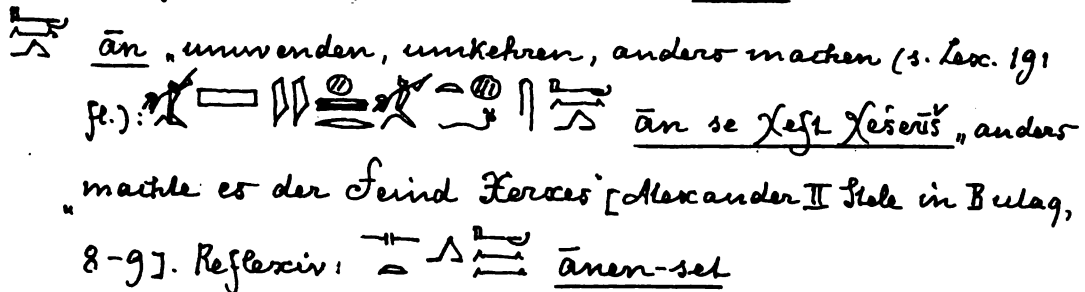 ān „umwenden, umkehren, anders machen (s. Lex. 191
fl.): ān se χeft χešerūš „anders
machte es der Feind Xerxes“ [Alexander II Stele in Bulaq,
8-9]. Reflexiv: ānen-set